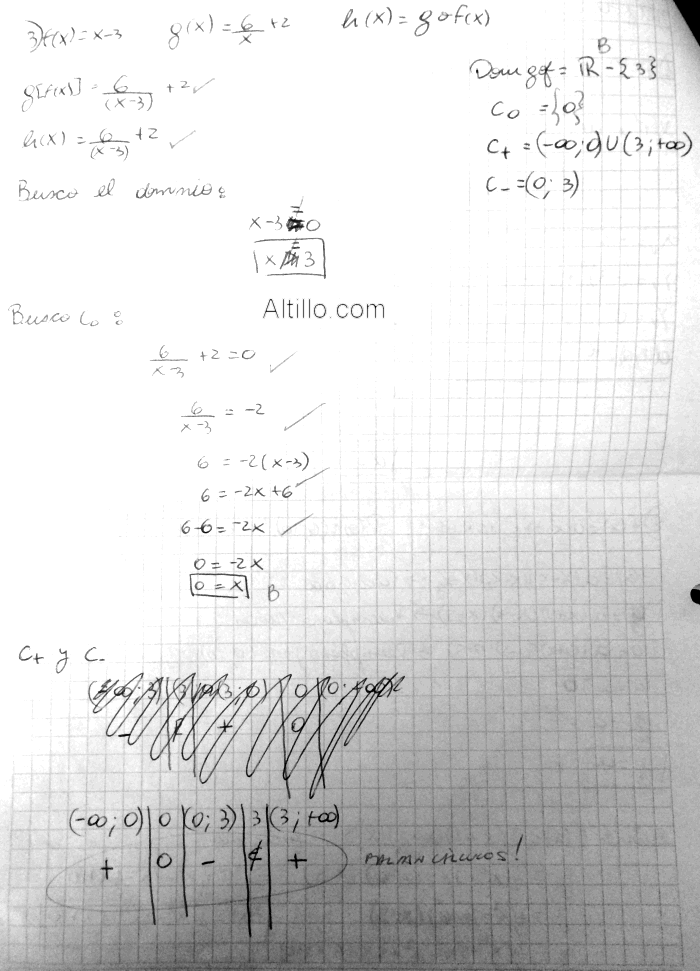 3) f(x) = x-3    g(x) = 6/x +2    h(x) = g o f(x)
g[f(x)] = 6/(x-3) +2 ✓
h(x) = 6/(x-3) +2 ✓
Busco el dominio:
x-3 = 0
x = 3
B
Dom gof = ℝ - {3}
C0 = {0}
C+ = (-∞; 0) ∪ (3; +∞)
C- = (0; 3)
Altillo.com
Busco C0:
6/(x-3) +2 = 0 ✓
6/(x-3) = -2 ✓
6 = -2(x-3)
6 = -2x+6 ✓
6-6 = -2x ✓
0 = -2x
0 = x B
C+ y C-
(-∞; 0) | 0 | (0; 3) | 3 | (3; +∞)
+ | 0 | - | ∉ | +
FALTAN CÁLCULOS!